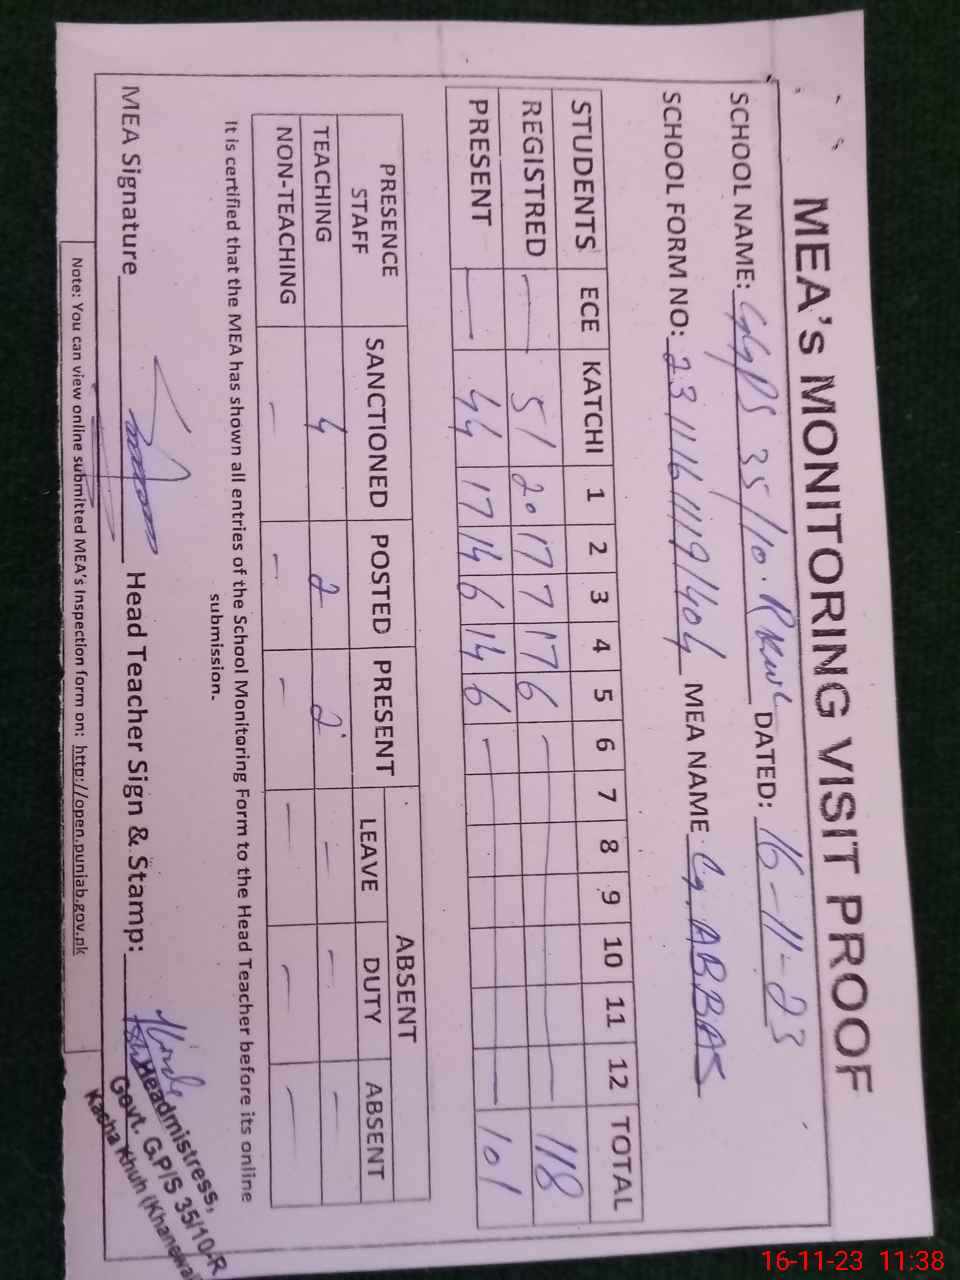 MEA's MONITORING VISIT PROOF
SCHOOL NAME: GGPS 35/10.R KWL DATED: 16-11-23
SCHOOL FORM NO: 23111611191404 MEA NAME G. ABBAS
STUDENTS ECE KATCHI 1 2 3 4 5 6 7 8 9 10 11 12 TOTAL
REGISTRED — 51 20 17 7 17 6 — 118
PRESENT — 44 17 14 6 14 6 — 101
PRESENCE STAFF SANCTIONED POSTED PRESENT ABSENT
LEAVE DUTY ABSENT
TEACHING 4 2 2 — — —
NON-TEACHING — — — — — —
It is certified that the MEA has shown all entries of the School Monitoring Form to the Head Teacher before its online
submission.
MEA Signature Head Teacher Sign & Stamp:
Headmistress,
Govt. G.P/S 35/10-R
Kacha Khuh (Khanewal
Note: You can view online submitted MEA's Inspection form on: http://open.punjab.gov.pk
16-11-23 11:38